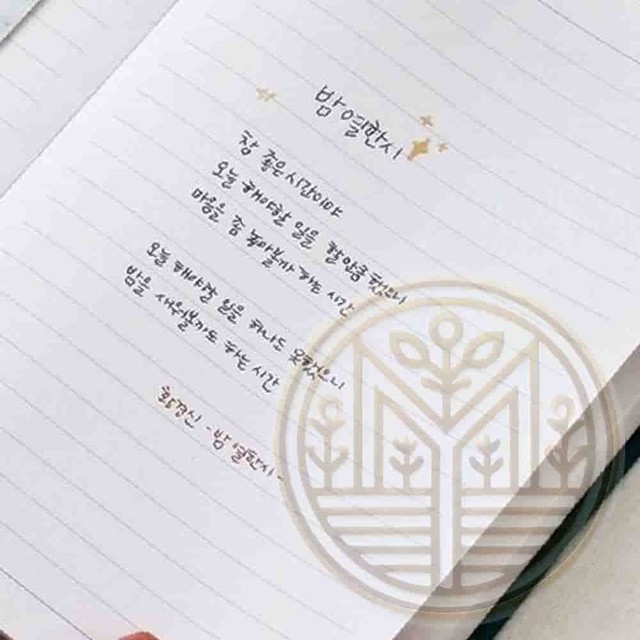 밤 열한시
참 좋은 시간이야
오늘 해야할 일을 할만큼 했으니
마음을 좀 놓아볼까 하는 시간
오늘 해야할 일을 하나도 못했으니
밤을 새워볼까도 하는 시간
황경신 - 밤 열한시.